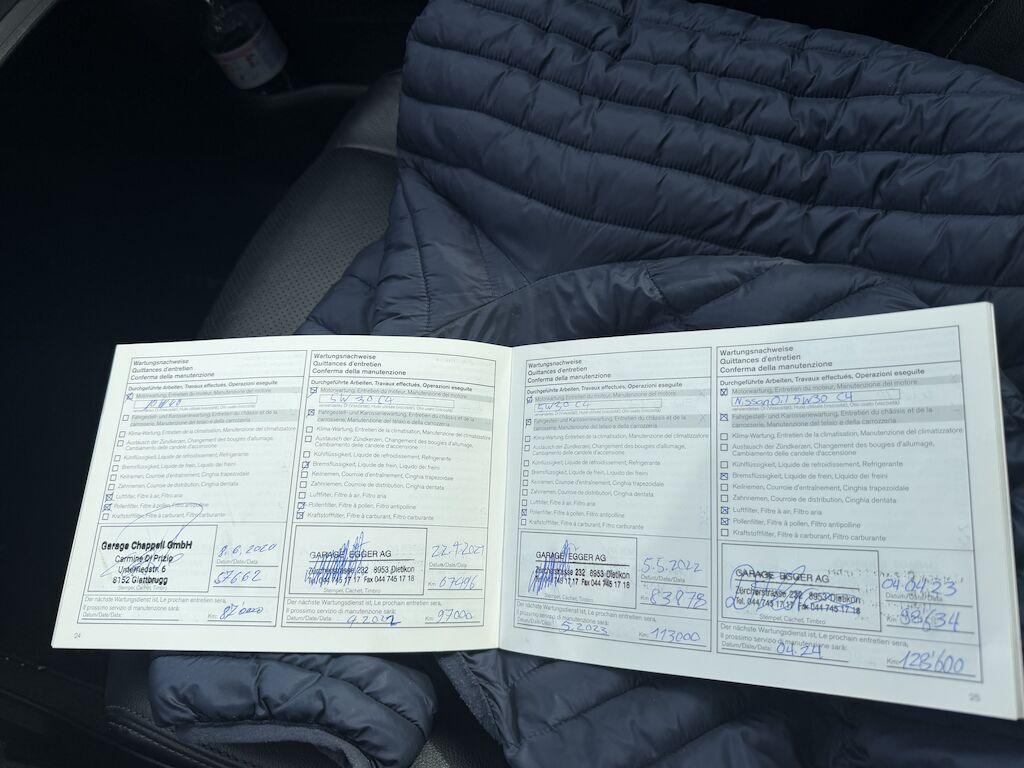 Wartungsnachweise
Quittances d'entretien
Conferma della manutenzione
Durchgeführte Arbeiten, Travaux effectués, Operazioni eseguite
Motorwartung, Entretien du moteur, Manutenzione del motore
Fahrgestell- und Karosseriewartung, Entretien du châssis et de la
carrosserie, Manutenzione del telaio e della carrozzeria
Klima-Wartung, Entretien de la climatisation, Manutenzione del climatizzatore
Austausch der Zündkerzen, Changement des bougies d'allumage,
Cambiamento delle candele d'accensione
Kühlflüssigkeit, Liquide de refroidissement, Refrigerante
Bremsflüssigkeit, Liquide de frein, Liquido dei freini
Keilriemen, Courroie d'entraînement, Cinghia trapezoidale
Zahnriemen, Courroie de distribution, Cinghia dentata
Luftfilter, Filtre à air, Filtro aria
Pollenfilter, Filtre à pollen, Filtro antipolline
Kraftstofffilter, Filtre à carburant, Filtro carburante
Garage Chappell GmbH
Carmine Di Prizio
Unterriedstr. 6
8152 Glattbrugg
Stempel, Cachet, Timbro
8.6.2020
Datum/Date/Data
Km: 57662
Der nächste Wartungsdienst ist, Le prochain entretien sera,
Il prossimo servizio di manutenzione sarà:
Datum/Date/Data:
Km: 87000
24
Wartungsnachweise
Quittances d'entretien
Conferma della manutenzione
Durchgeführte Arbeiten, Travaux effectués, Operazioni eseguite
Motorwartung, Entretien du moteur, Manutenzione del motore
5W30 C4
Fahrgestell- und Karosseriewartung, Entretien du châssis et de la
carrosserie, Manutenzione del telaio e della carrozzeria
Klima-Wartung, Entretien de la climatisation, Manutenzione del climatizzatore
Austausch der Zündkerzen, Changement des bougies d'allumage,
Cambiamento delle candele d'accensione
Kühlflüssigkeit, Liquide de refroidissement, Refrigerante
Bremsflüssigkeit, Liquide de frein, Liquido dei freini
Keilriemen, Courroie d'entraînement, Cinghia trapezoidale
Zahnriemen, Courroie de distribution, Cinghia dentata
Luftfilter, Filtre à air, Filtro aria
Pollenfilter, Filtre à pollen, Filtro antipolline
Kraftstofffilter, Filtre à carburant, Filtro carburante
GARAGE EGGER AG
Zürcherstrasse 232 8953 Dietikon
Tel. 044 745 17 17 Fax 044 745 17 18
Stempel, Cachet, Timbro
22.4.2021
Datum/Date/Data
Km: 67496
Der nächste Wartungsdienst ist, Le prochain entretien sera,
Il prossimo servizio di manutenzione sarà:
Datum/Date/Data:
Km: 97000
Wartungsnachweise
Quittances d'entretien
Conferma della manutenzione
Durchgeführte Arbeiten, Travaux effectués, Operazioni eseguite
Motorwartung, Entretien du moteur, Manutenzione del motore
5W30 C4
Fahrgestell- und Karosseriewartung, Entretien du châssis et de la
carrosserie, Manutenzione del telaio e della carrozzeria
Klima-Wartung, Entretien de la climatisation, Manutenzione del climatizzatore
Austausch der Zündkerzen, Changement des bougies d'allumage,
Cambiamento delle candele d'accensione
Kühlflüssigkeit, Liquide de refroidissement, Refrigerante
Bremsflüssigkeit, Liquide de frein, Liquido dei freini
Keilriemen, Courroie d'entraînement, Cinghia trapezoidale
Zahnriemen, Courroie de distribution, Cinghia dentata
Luftfilter, Filtre à air, Filtro aria
Pollenfilter, Filtre à pollen, Filtro antipolline
Kraftstofffilter, Filtre à carburant, Filtro carburante
GARAGE EGGER AG
Zürcherstrasse 232 8953 Dietikon
Tel. 044 745 17 17 Fax 044 745 17 18
Stempel, Cachet, Timbro
5.5.2022
Datum/Date/Data
Km: 83978
Der nächste Wartungsdienst ist, Le prochain entretien sera,
Il prossimo servizio di manutenzione sarà:
Datum/Date/Data: 5.2023
Km: 113000
Wartungsnachweise
Quittances d'entretien
Conferma della manutenzione
Durchgeführte Arbeiten, Travaux effectués, Operazioni eseguite
Motorwartung, Entretien du moteur, Manutenzione del motore
Nissan Oil 5W30 C4
Fahrgestell- und Karosseriewartung, Entretien du châssis et de la
carrosserie, Manutenzione del telaio e della carrozzeria
Klima-Wartung, Entretien de la climatisation, Manutenzione del climatizzatore
Austausch der Zündkerzen, Changement des bougies d'allumage,
Cambiamento delle candele d'accensione
Kühlflüssigkeit, Liquide de refroidissement, Refrigerante
Bremsflüssigkeit, Liquide de frein, Liquido dei freini
Keilriemen, Courroie d'entraînement, Cinghia trapezoidale
Zahnriemen, Courroie de distribution, Cinghia dentata
Luftfilter, Filtre à air, Filtro aria
Pollenfilter, Filtre à pollen, Filtro antipolline
Kraftstofffilter, Filtre à carburant, Filtro carburante
GARAGE EGGER AG
Zürcherstrasse 232 8953 Dietikon
Tel. 044 745 17 17 Fax 044 745 17 18
Stempel, Cachet, Timbro
04.04.23
Datum/Date/Data
Km: 98'634
Der nächste Wartungsdienst ist, Le prochain entretien sera,
Il prossimo servizio di manutenzione sarà:
Datum/Date/Data: 04.24
Km: 128'600
25